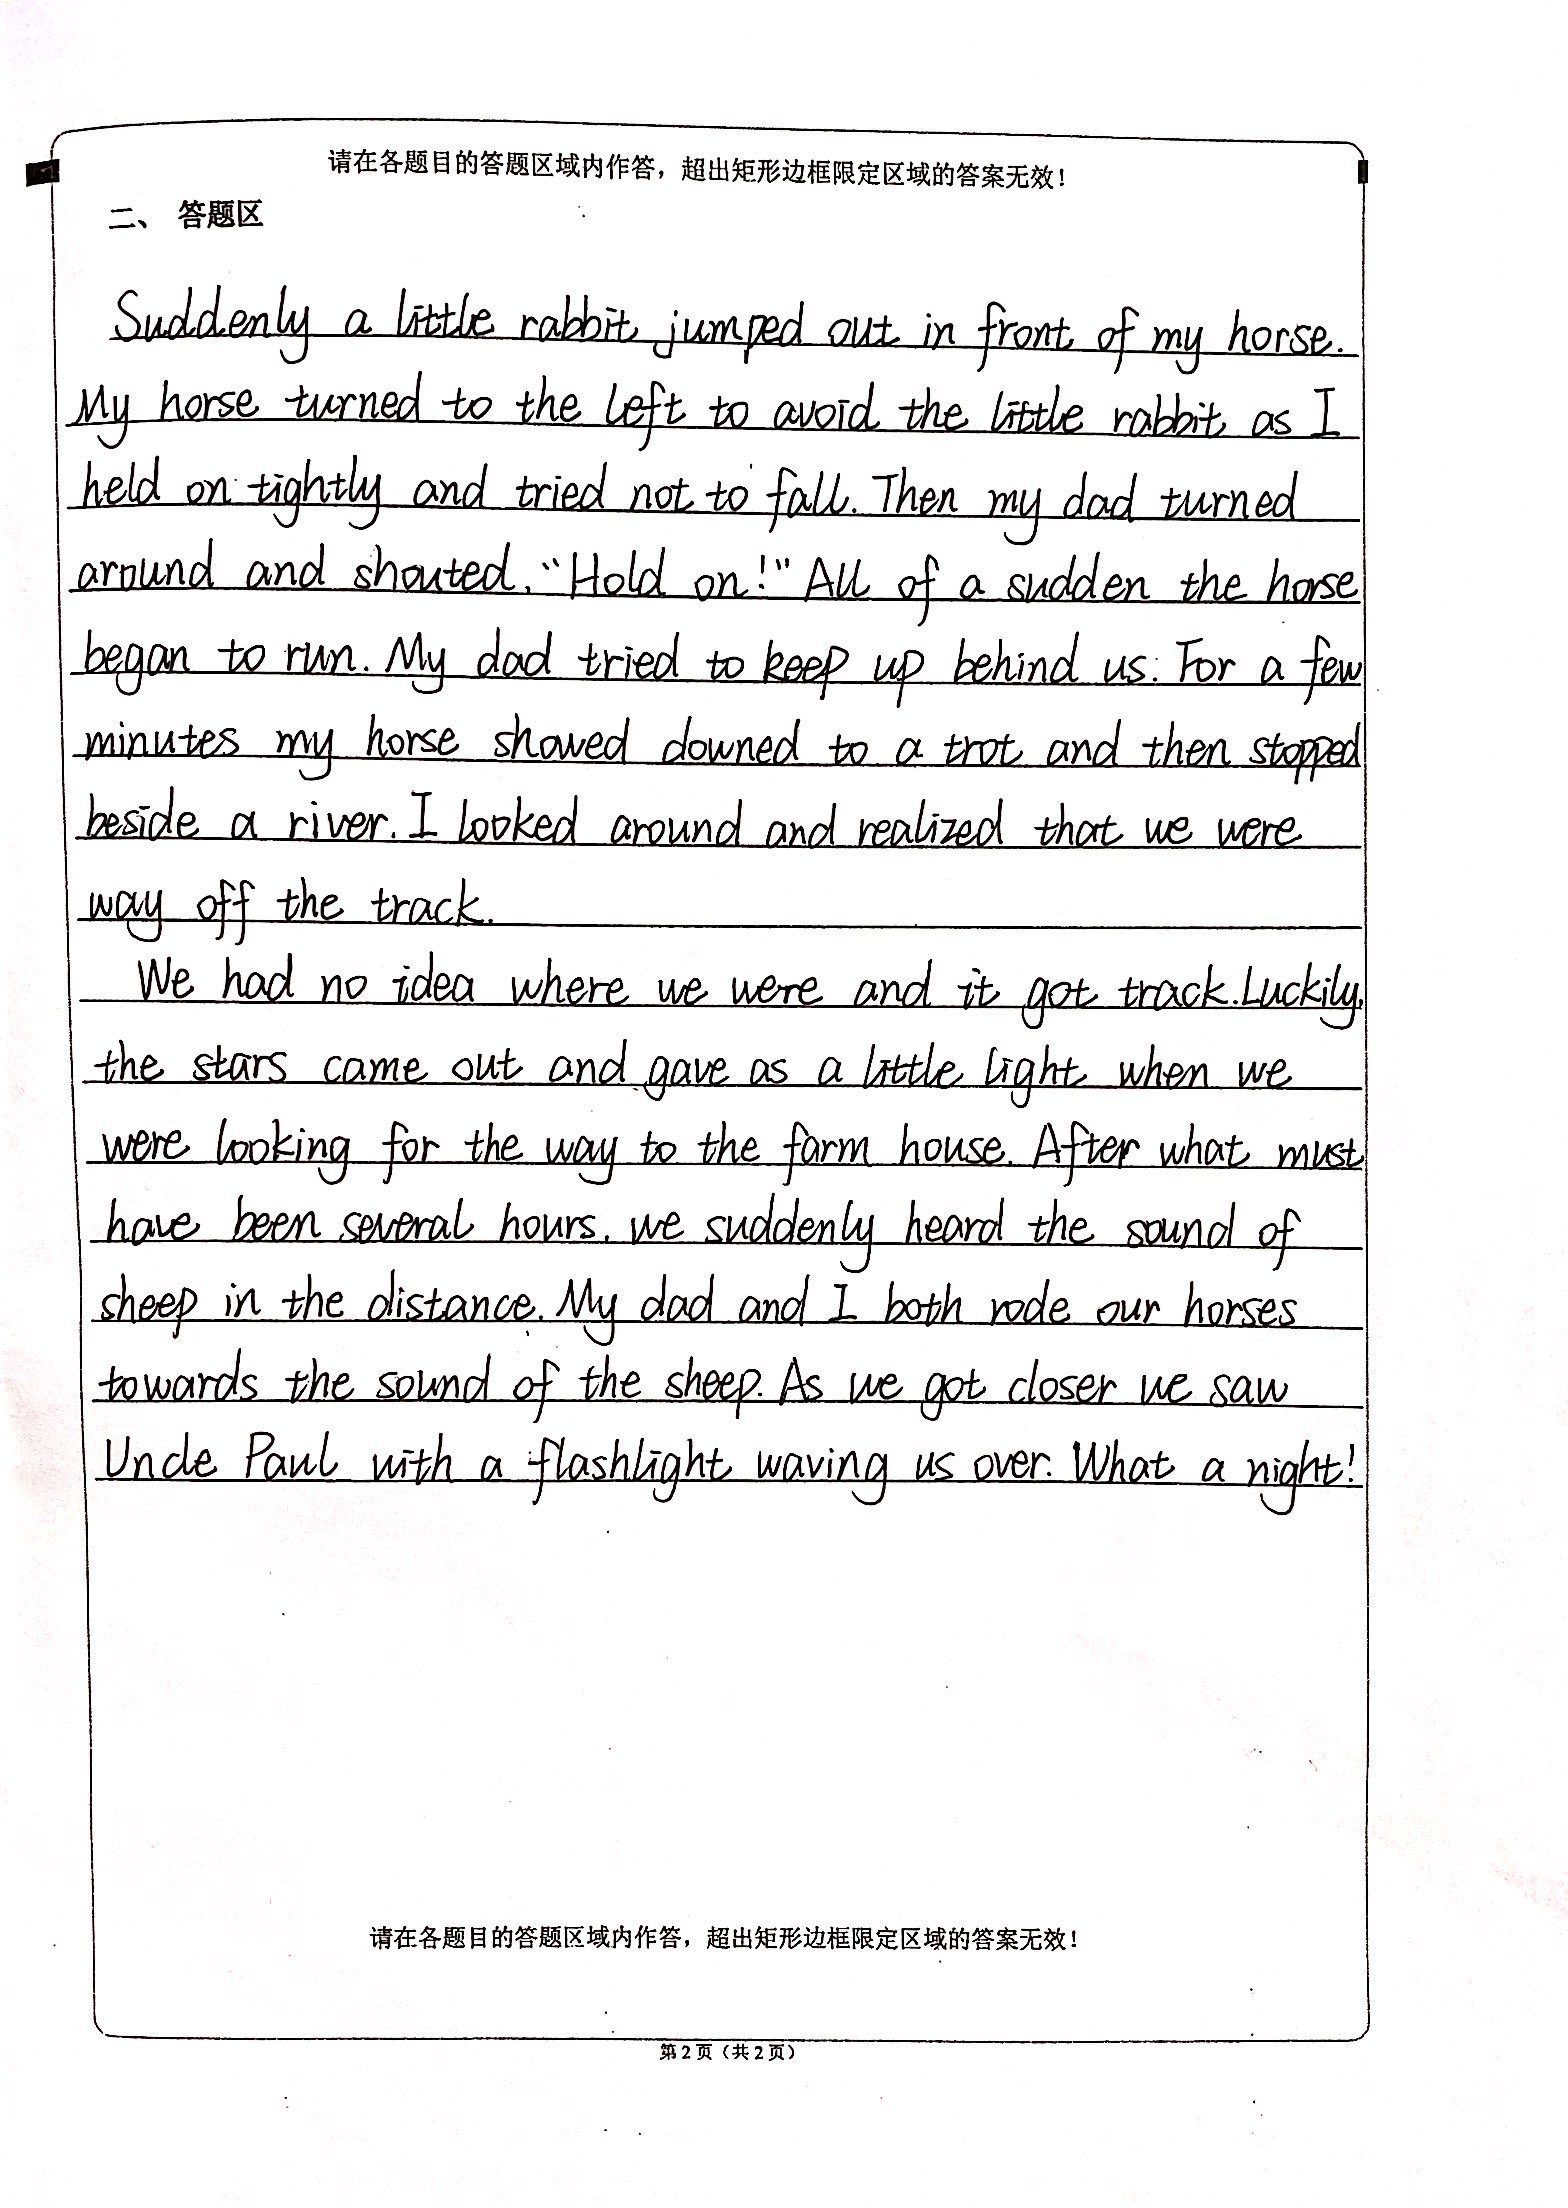 请在各题目的答题区域内作答，超出矩形边框限定区域的答案无效！
二、 答题区
Suddenly a little rabbit jumped out in front of my horse.
My horse turned to the left to avoid the little rabbit as I
held on tightly and tried not to fall. Then my dad turned
around and shouted, "Hold on!" All of a sudden the horse
began to run. My dad tried to keep up behind us. For a few
minutes my horse showed downed to a trot and then stopped
beside a river. I looked around and realized that we were
way off the track.
We had no idea where we were and it got track. Luckily,
the stars came out and gave as a little light when we
were looking for the way to the farm house. After what must
have been several hours, we suddenly heard the sound of
sheep in the distance. My dad and I both rode our horses
towards the sound of the sheep. As we got closer we saw
Uncle Paul with a flashlight waving us over. What a night!
请在各题目的答题区域内作答，超出矩形边框限定区域的答案无效！
第2页（共2页）